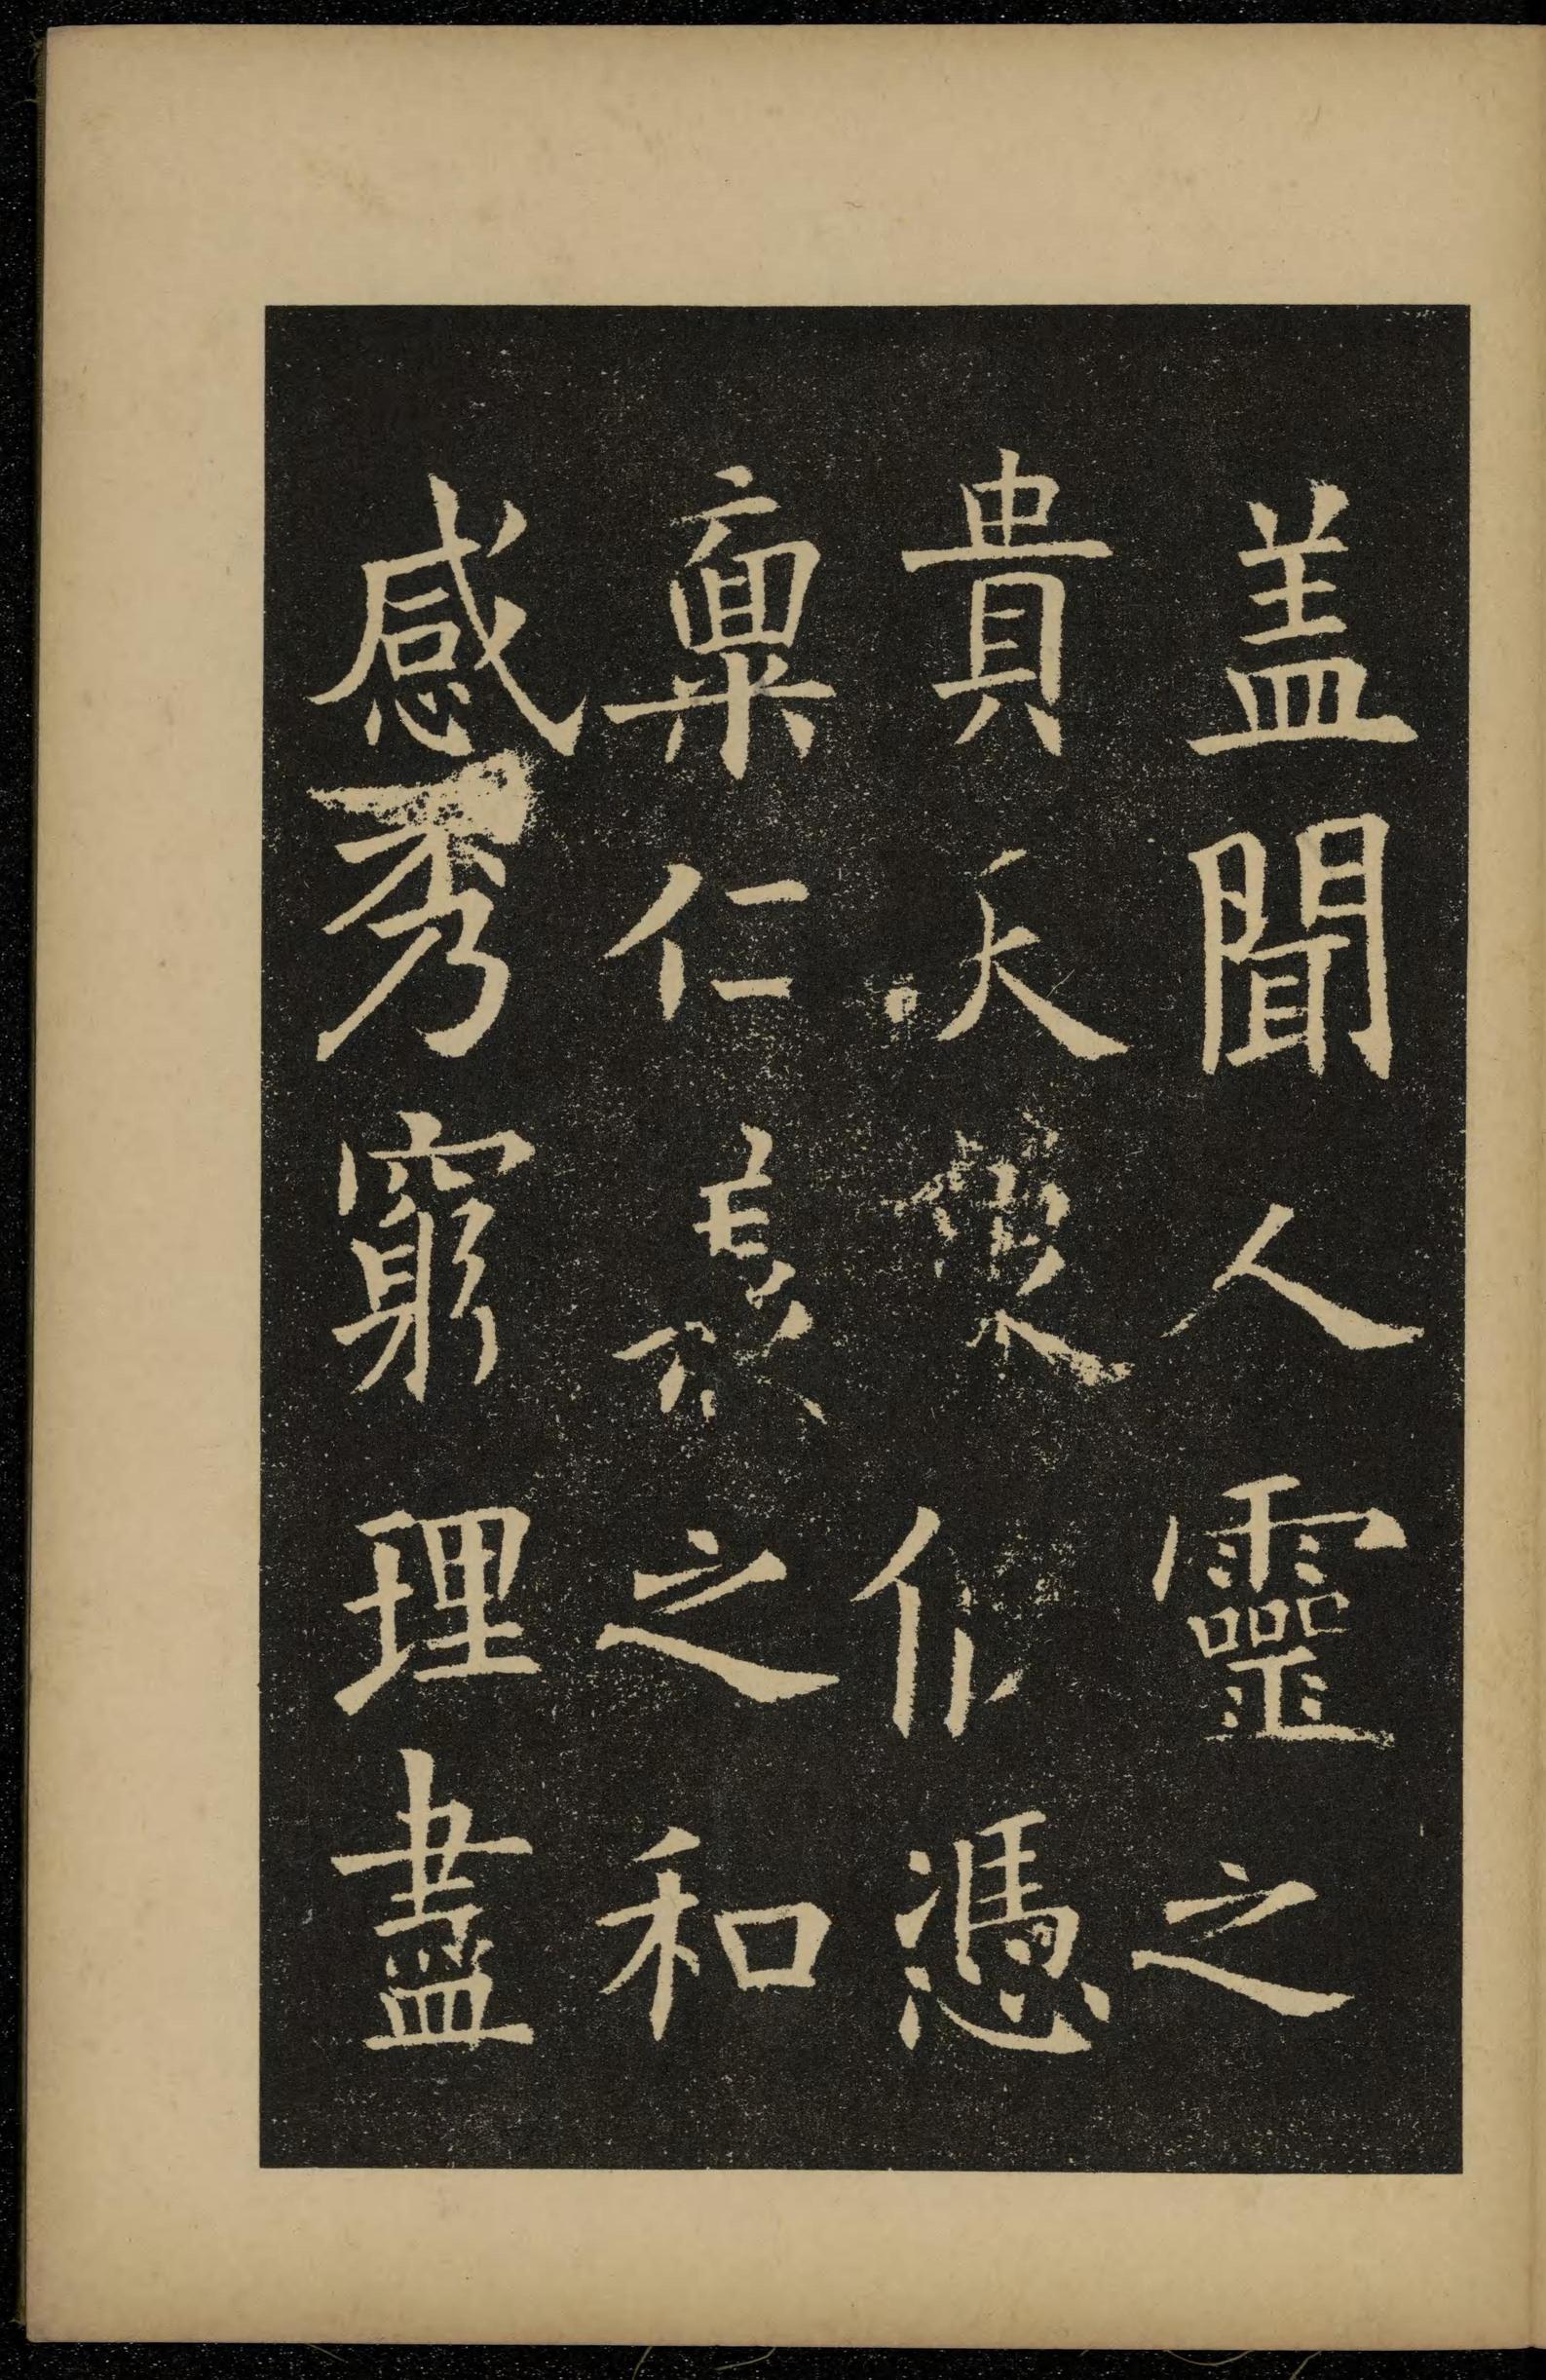 盖聞人靈之
貴天攸憑
稟仁義之和
感秀窮理盡